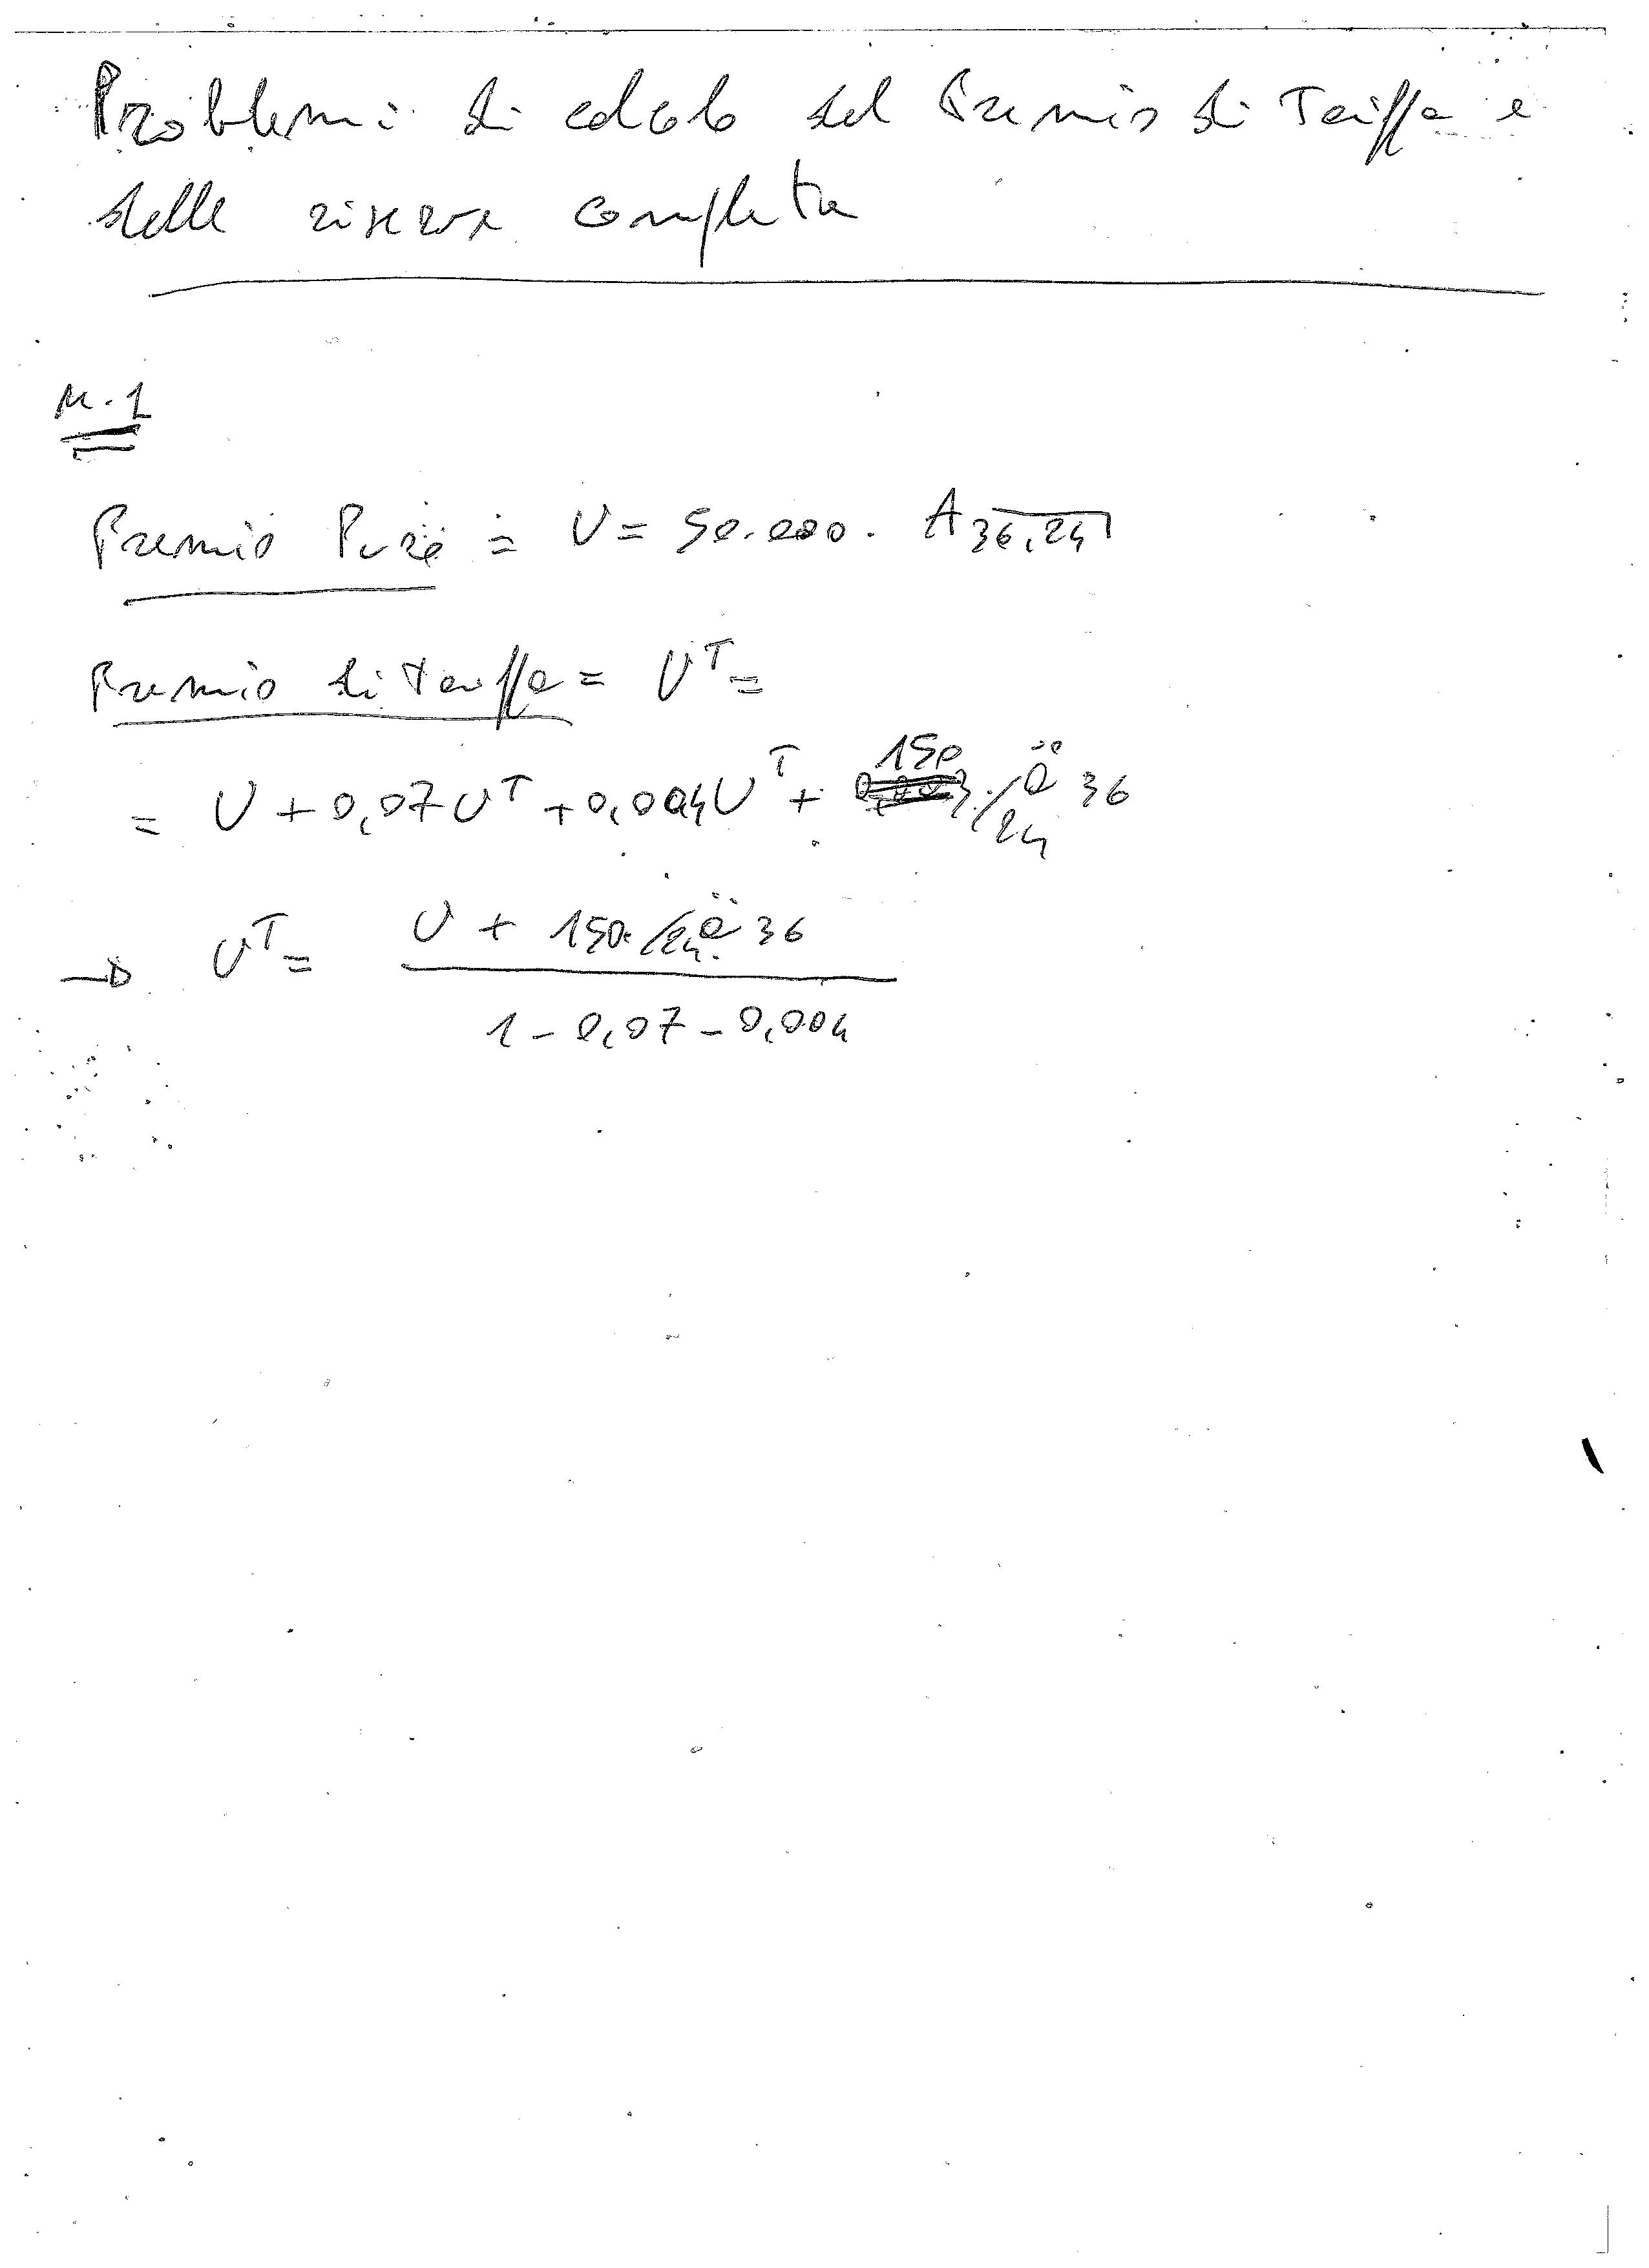 Problemi di calcolo del Premio di Tariffa e
della riserva completa
N. 1
Premio Puro = U = 50.000 · A36,24˥
Premio di tariffa = Uᵀ =
= U + 0,07Uᵀ + 0,004Uᵀ + 150 · /24 ä 36
→ Uᵀ = U + 150 · /24 ä 36
1 - 0,07 - 0,004